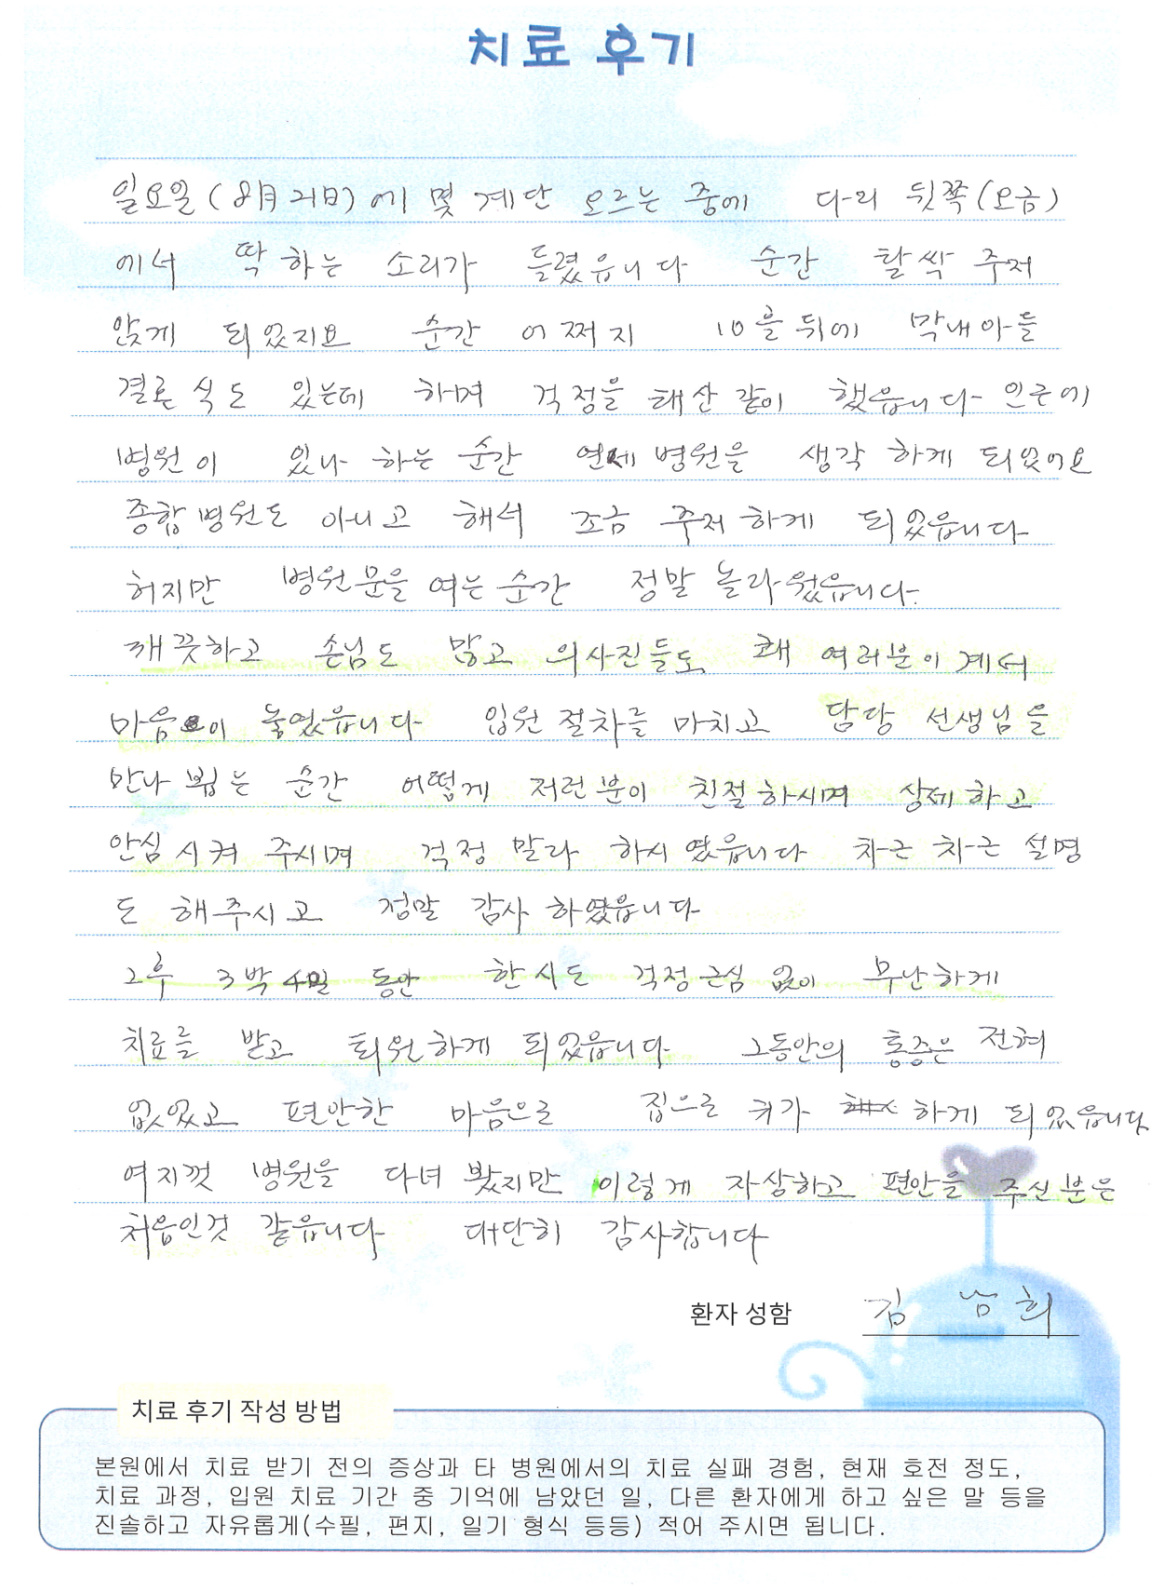 치료 후기
일요일(8月 21日)에 몇 계단 오르는 중에 다리 뒷쪽(오금)
에서 딱 하는 소리가 들렸읍니다 순간 탈싹 주저
앉게 되었지요 순간 어쩌지 10흘 뒤에 막내아들
결혼식도 있는데 하며 걱정을 태산 같이 했읍니다 인근에
병원이 있나 하는 순간 연세 병원을 생각 하게 되었어요
종합병원도 아니고 해서 조금 주저 하게 되었읍니다
허지만 병원문을 여는 순간 정말 놀라웠읍니다.
깨끗하고 손님도 많고 의사진들도 꽤 여러분이 계셔
마음이 놓였읍니다 입원 절차를 마치고 담당 선생님을
만나 뵙는 순간 어떻게 저런분이 친절하시며 상세하고
안심 시켜 주시며 걱정 말라 하시였읍니다 차근 차근 설명
도 해주시고 정말 감사 하였읍니다
그후 3박 4일 동안 한시도 걱정근심 없이 무난하게
치료를 받고 퇴원하게 되었읍니다 그동안의 통증은 전혀
없었고 편안한 마음으로 집으로 귀가 하게 되었읍니다
여지껏 병원을 다녀 봤지만 이렇게 자상하고 편안을 주신분은
처음인것 같읍니다 대단히 감사합니다
환자 성함 김남희
치료 후기 작성 방법
본원에서 치료 받기 전의 증상과 타 병원에서의 치료 실패 경험, 현재 호전 정도,
치료 과정, 입원 치료 기간 중 기억에 남았던 일, 다른 환자에게 하고 싶은 말 등을
진솔하고 자유롭게(수필, 편지, 일기 형식 등등) 적어 주시면 됩니다.